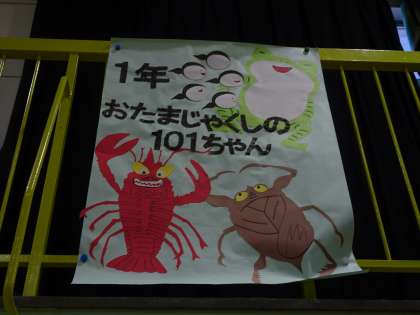 1年
おたまじゃくしの
101ちゃん